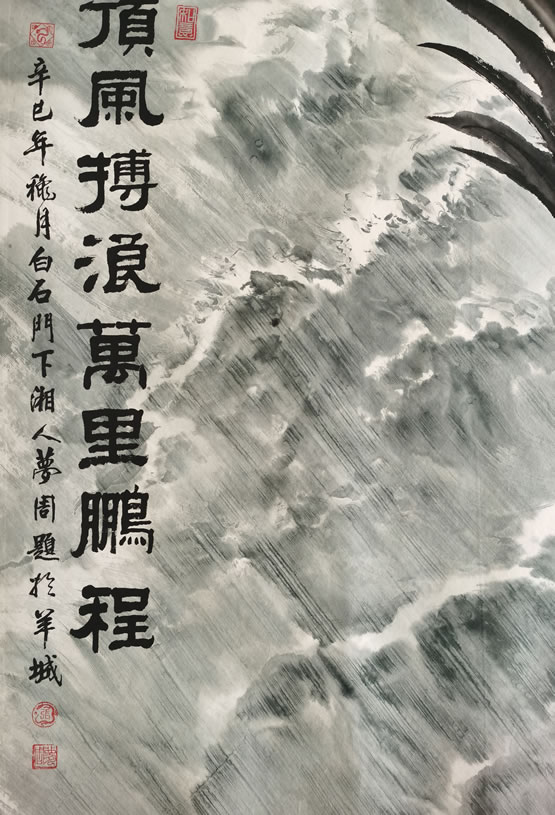 頂風搏浪萬里鵬程
辛巳年穐月白石門下湘人夢周題於羊城